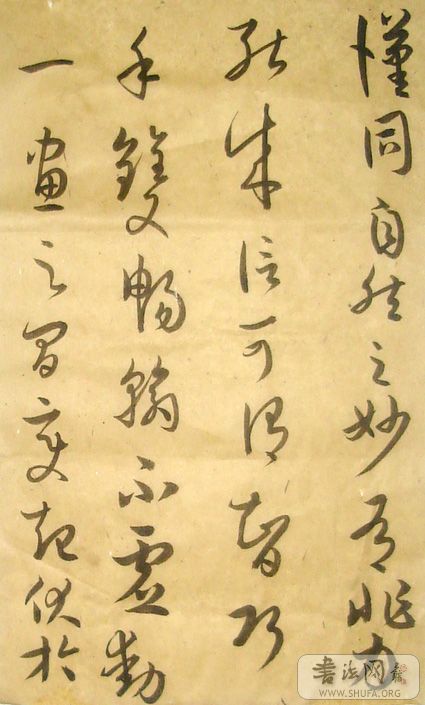 漢同自然之妙有非力
能成信可謂智巧
手雙暢翰不虛動
一畫之間變起伏於
书法网
WWW.SHUFA.ORG